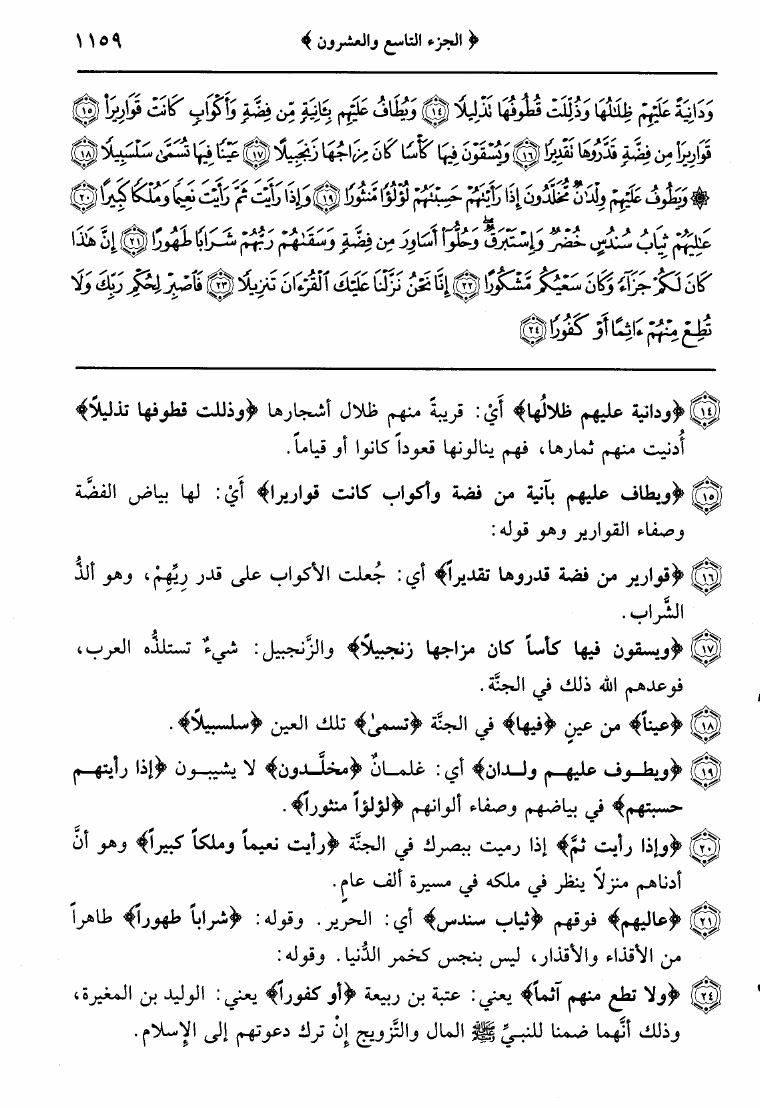 ﴿ الجزء التاسع والعشرون ﴾ ١١٥٩
وَدَانِيَةً عَلَيْهِمْ ظِلَٰلُهَا وَذُلِّلَتْ قُطُوفُهَا تَذْلِيلًا ﴿١٤﴾ وَيُطَافُ عَلَيْهِم بِـَٔانِيَةٍ مِّن فِضَّةٍ وَأَكْوَابٍ كَانَتْ قَوَارِيرَا۠ ﴿١٥﴾
قَوَارِيرَا۟ مِن فِضَّةٍ قَدَّرُوهَا تَقْدِيرًا ﴿١٦﴾ وَيُسْقَوْنَ فِيهَا كَأْسًا كَانَ مِزَاجُهَا زَنجَبِيلًا ﴿١٧﴾ عَيْنًا فِيهَا تُسَمَّىٰ سَلْسَبِيلًا ﴿١٨﴾
۞ وَيَطُوفُ عَلَيْهِمْ وِلْدَٰنٌ مُّخَلَّدُونَ إِذَا رَأَيْتَهُمْ حَسِبْتَهُمْ لُؤْلُؤًا مَّنثُورًا ﴿١٩﴾ وَإِذَا رَأَيْتَ ثَمَّ رَأَيْتَ نَعِيمًا وَمُلْكًا كَبِيرًا ﴿٢٠﴾
عَٰلِيَهُمْ ثِيَابُ سُندُسٍ خُضْرٌ وَإِسْتَبْرَقٌ ۖ وَحُلُّوٓا۟ أَسَاوِرَ مِن فِضَّةٍ وَسَقَىٰهُمْ رَبُّهُمْ شَرَابًا طَهُورًا ﴿٢١﴾ إِنَّ هَٰذَا
كَانَ لَكُمْ جَزَآءً وَكَانَ سَعْيُكُم مَّشْكُورًا ﴿٢٢﴾ إِنَّا نَحْنُ نَزَّلْنَا عَلَيْكَ ٱلْقُرْءَانَ تَنزِيلًا ﴿٢٣﴾ فَٱصْبِرْ لِحُكْمِ رَبِّكَ وَلَا
تُطِعْ مِنْهُمْ ءَاثِمًا أَوْ كَفُورًا ﴿٢٤﴾
﴿١٤﴾ ﴿ودانية عليهم ظلالُها﴾ أَيْ: قريبةً منهم ظلال أشجارها ﴿وذللت قطوفها تذليلاً﴾
أُدنيت منهم ثمارها، فهم ينالونها قعوداً كانوا أو قياماً.
﴿١٥﴾ ﴿ويطاف عليهم بآنية من فضة وأكواب كانت قواريرا﴾ أَيْ: لها بياض الفضَّة
وصفاء القوارير وهو قوله:
﴿١٦﴾ ﴿قوارير من فضة قدروها تقديراً﴾ أي: جُعلت الأكواب على قدر رِيِّهِمْ، وهو ألذُّ
الشَّراب.
﴿١٧﴾ ﴿ويسقون فيها كأساً كان مزاجها زنجبيلاً﴾ والزَّنجبيل: شيءٌ تستلذُّه العرب،
فوعدهم الله ذلك في الجنَّة.
﴿١٨﴾ ﴿عيناً﴾ من عينٍ ﴿فيها﴾ في الجنَّة ﴿تسمىٰ﴾ تلك العين ﴿سلسبيلاً﴾.
﴿١٩﴾ ﴿ويطوف عليهم ولدان﴾ أي: غلمانٌ ﴿مخلَّدون﴾ لا يشيبون ﴿إذا رأيتهم
حسبتهم﴾ في بياضهم وصفاء ألوانهم ﴿لؤلؤاً منثوراً﴾.
﴿٢٠﴾ ﴿وإذا رأيت ثمَّ﴾ إذا رميت ببصرك في الجنَّة ﴿رأيت نعيماً وملكاً كبيراً﴾ وهو أنَّ
أدناهم منزلاً ينظر في ملكه في مسيرة ألف عامٍ.
﴿٢١﴾ ﴿عاليهم﴾ فوقهم ﴿ثياب سندس﴾ أي: الحرير. وقوله: ﴿شراباً طهوراً﴾ طاهراً
من الأقذاء والأقذار، ليس بنجس كخمر الدُّنيا. وقوله:
﴿٢٤﴾ ﴿ولا تطع منهم آثماً﴾ يعني: عتبة بن ربيعة ﴿أو كفوراً﴾ يعني: الوليد بن المغيرة،
وذلك أنَّهما ضمنا للنبيِّ ﷺ المال والتَّزويج إنْ ترك دعوتهم إلى الإسلام.